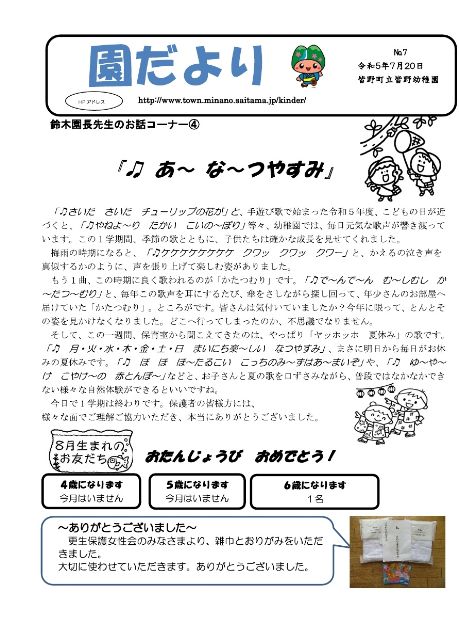 園だより
№7
令和5年7月20日
皆野町立皆野幼稚園
HPアドレス
http://www.town.minano.saitama.jp/kinder/
鈴木園長先生のお話コーナー④
『♫ あ～ な～つやすみ』
「♫さいた さいた チューリップの花が」と、手遊び歌で始まった令和5年度、こどもの日が近
づくと、「♫やねよ～り たかい こいの～ぼり」等々、幼稚園では、毎日元気な歌声が響き渡って
います。この1学期間、季節の歌とともに、子供たちは確かな成長を見せてくれました。
梅雨の時期になると、「♫ケケケケケケケケ クワッ クワッ クワー」と、かえるの泣き声を
真似するかのように、声を張り上げて楽しむ姿がありました。
もう1曲、この時期に良く歌われるのが「かたつむり」です。「♫で～んで～ん む～しむし か
～たつ～むり」と、毎年この歌声を耳にするたび、傘をさしながら探し回って、年少さんのお部屋へ
届けていた「かたつむり」。ところがです。皆さんは気付いていましたか？今年に限って、とんとそ
の姿を見かけなくなりました。どこへ行ってしまったのか、不思議でなりません。
そして、この一週間、保育室から聞こえてきたのは、やっぱり「ヤッホッホ 夏休み」の歌です。
「♫ 月・火・水・木・金・土・日 まいにち楽～しい なつやすみ」、まさに明日から毎日がお休
みの夏休みです。「♫ ほ ほ ほ～たるこい こっちのみ～ずはあ～まいぞ」や、「♫ ゆ～や～
け こやけ～の 赤とんぼ～」などと、お子さんと夏の歌を口ずさみながら、普段ではなかなかでき
ない様々な自然体験ができるといいですね。
今日で1学期は終わりです。保護者の皆様方には、
様々な面でご理解ご協力いただき、本当にありがとうございました。
8月生まれの
お友だち
おたんじょうび おめでとう！
4歳になります
今月はいません
5歳になります
今月はいません
6歳になります
1名
～ありがとうございました～
更生保護女性会のみなさまより、雑巾とおりがみをいただ
きました。
大切に使わせていただきます。ありがとうございました。